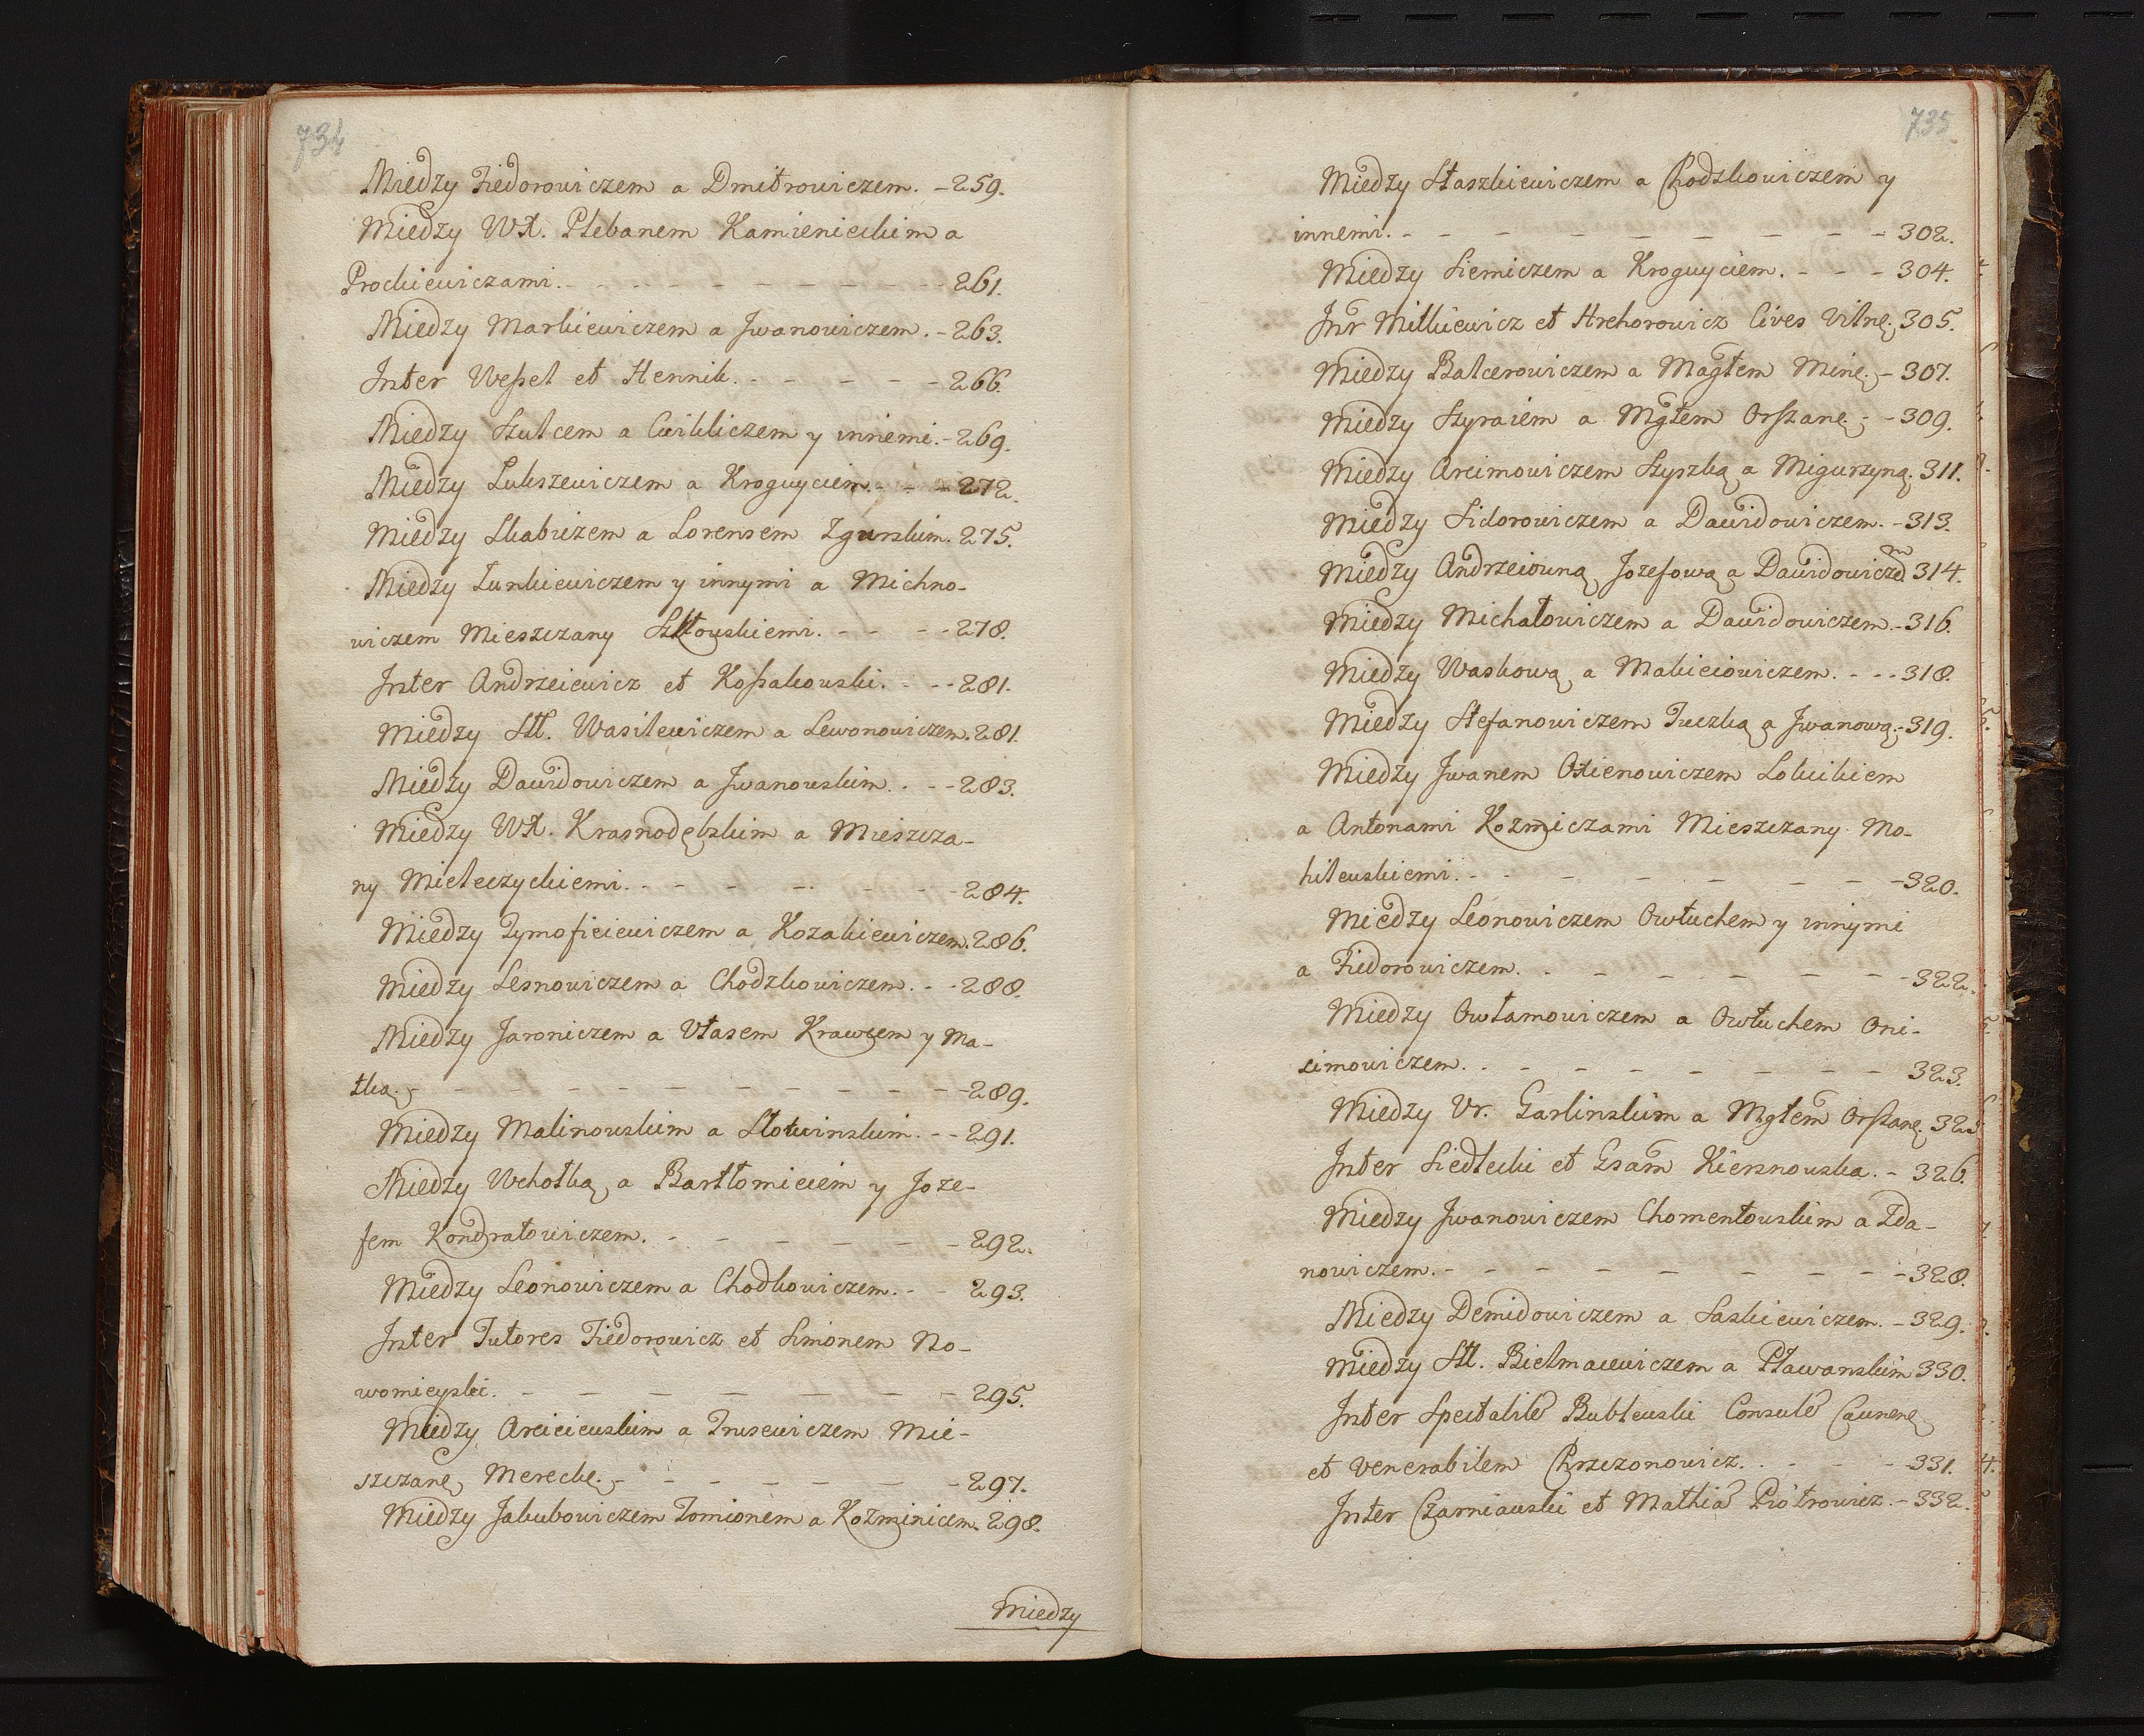 734
Między Fiedorowiczem a Dmitrowiczem. - 259.
Między WX. Plebanem Kamienieckim a
Prockiewiczami. - - - - - - - - - 261.
Między Markiewiczem a Jwanowiczem. - 263.
Jnter Weßel et Hennik. - - - - - 266.
Między Szulcem a Cwikliczem y innemi. - 269.
Między Lukszewiczem a Kroguyciem. - - - 272.
Między Skabiczem a Lorensem Zgurskim. 275.
Między Lunkiewiczem y innymi a Michno-
wiczem Mieszczany Szkłowskiemi. - - - - 278.
Jnter Andrzeiewicz et Koßakowski. - - - 281.
Między Stł. Wasilewiczem a Lewonowiczem. 281.
Między Dawidowiczem a Jwanowskim. - - - 283.
Między WX. Krasnodębskim a Mieszcza-
ny Mieleczyckiemi. - - - - - - - 284.
Między Tymofieiewiczem a Kozakiewiczem. 286.
Między Lesnowiczem a Chodzkowiczem. - - 288.
Między Jaroniczem a Ułasem Krawcem y Ma-
tką. - - - - - - - - - - 289.
Między Malinowskim a Słotwinskim. - - 291.
Między Wchotką a Bartłomieiem y Joze-
fem Kondratowiczem. - - - - - - - 292.
Między Leonowiczem a Chodkowiczem. - - 293.
Jnter Tutores Fiedorowicz et Simonem No-
womieyski. - - - - - - - 295.
Między Arcieiewskim a Trusewiczem Mie-
szczane Merecke. - - - - - - - 297.
Między Jakubowiczem Tomionem a Kozminicem. 298.
Między
735
Między Staszkiewiczem a Chodzkowiczem y
innemi. - - - - - - - - - 302.
Między Siemiczem a Kroguyciem. - - - 304.
Jnr Mitkiewicz et Hrehorowicz Cives Vilne. 305.
Między Balcerowiczem a Magtem Mine. - 307.
Między Szyraiem a Mgtem Orszane. - 309.
Między Arcimowiczem Szyszką a Migurzyną. 311.
Między Sidorowiczem a Dawidowiczem. - 313.
Między Andrzeiowną Jozefową a Dawidowiczem 314.
Między Michałowiczem a Dawidowiczem. - 316.
Między Waskową a Makieiowiczem. - - - 318.
Między Stefanowiczem Tuczką a Jwanową. - 319.
Między Jwanem Oxienowiczem Lokuikiem
a Antonami Kozmiczami Mieszczany Mo-
hilewskiemi. - - - - - - - - 320.
Między Leonowiczem Owłuchem y innymi
a Fiedorowiczem. - - - - - - - 322.
Między Owłamowiczem a Owłuchem Oni-
simowiczem. - - - - - - - - 323.
Między Ur. Garlinskim a Mgtem Orszane. 325
Jnter Siedlecki et Gsam Kiersnowska. - 326.
Między Jwanowiczem Chomentowskim a Zda-
nowiczem. - - - - - - - - 328.
Między Demidowiczem a Saskiewiczem. - 329.
Między Stł. Bielmacewiczem a Pławanskim 330.
Jnter Spectabile Bublewski Consule Caunene
et Venerabilem Chrzczonowicz. - - - - 331.
Jnter Czarniawski et Mathia Piotrowicz. - 332.